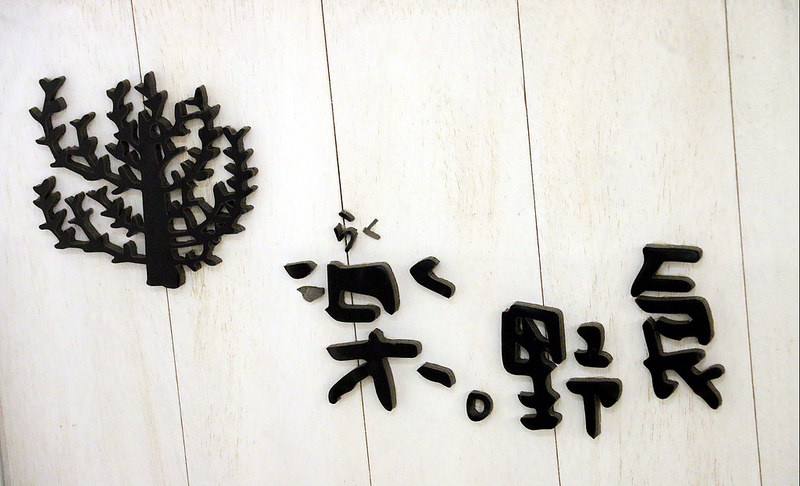 らく
楽。野長